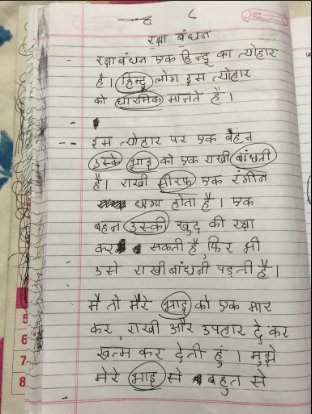 रक्षा बंधन
रक्षाबंधन एक हिन्दू का त्योहार
है। हिन्दू लोग इस त्योहार
को धारमिक मानते हैं।
इस त्योहार पर एक बहन
उसके भाइ को एक राखी बांधती
है। राखी सीरफ एक रंगीन
धागा होता है। एक
बहन उसकी खुद की रक्षा
कर सकती है फिर भी
उसे राखी बांधनी पड़ती है।
मै तो मेरे भाइ को एक मार
कर राखी और उपहार दे कर
खत्म कर देती हुं। मुझे
मेरे भाइ से बहुत से
5
6
7
8